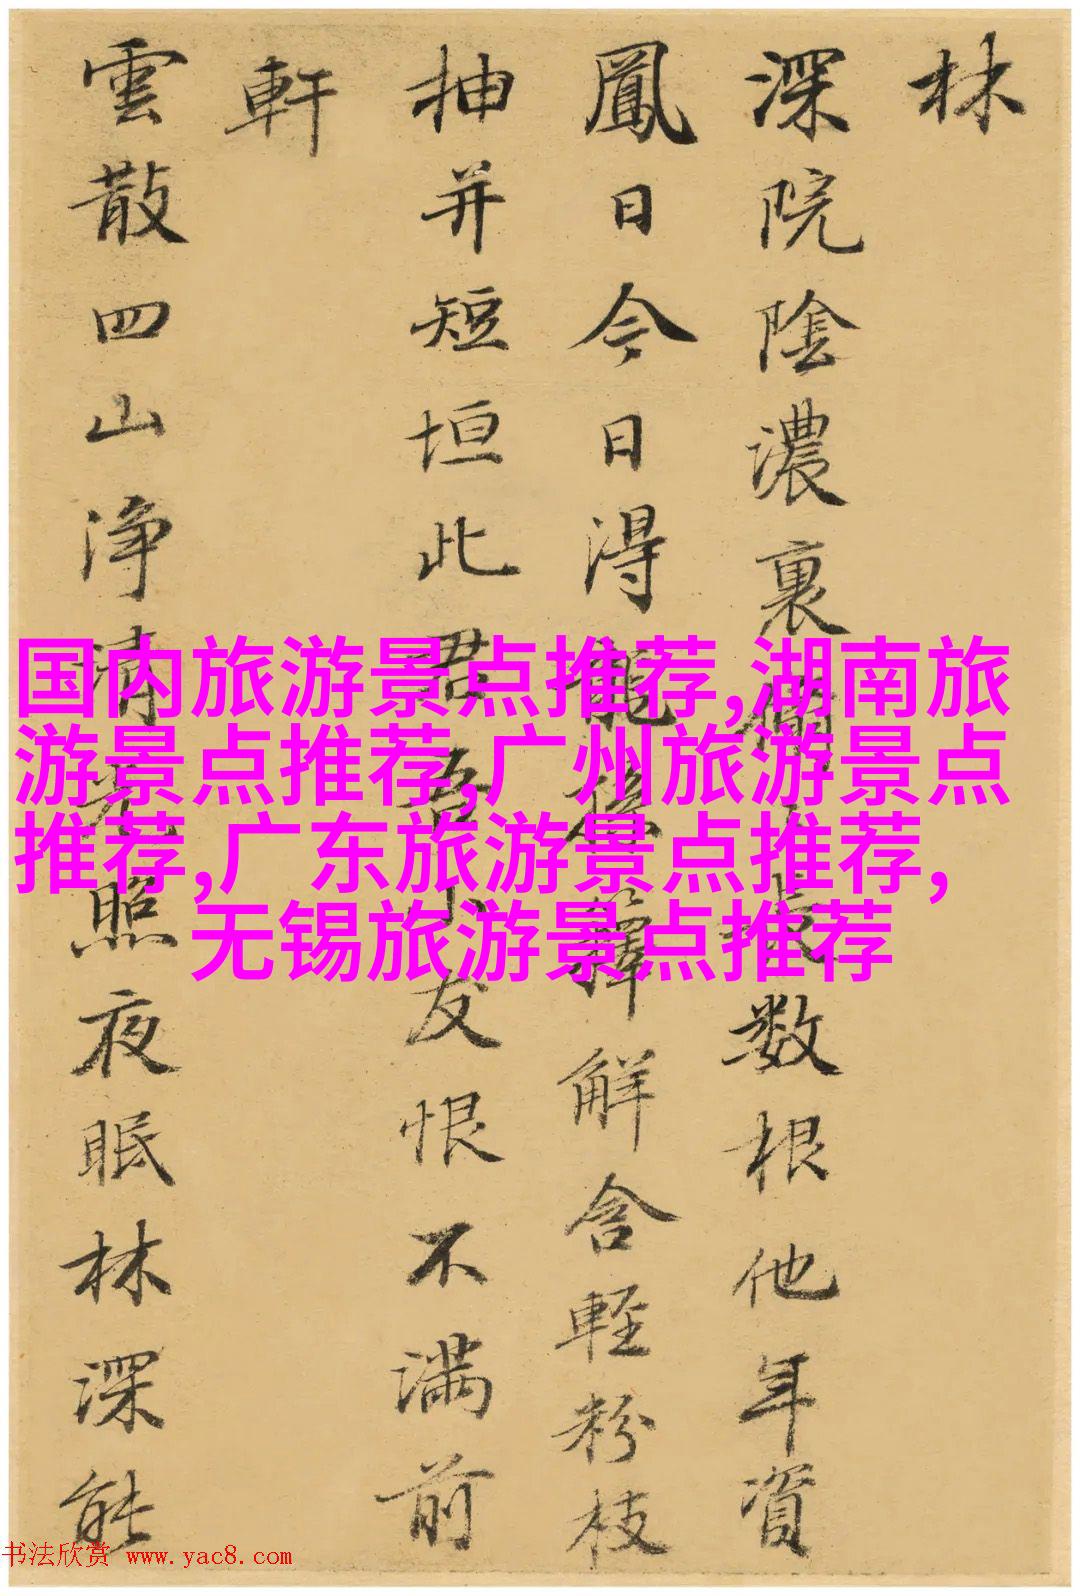 林
深院陰濃裏長数根他年資
鳳日今日得龍孫籜解含輕粉枝
抽并短垣此君吾小友恨不満前
軒
雲散四山浄清光照夜眠林深能
国内旅游景点推荐,湖南旅
游景点推荐,广州旅游景点
推荐,广东旅游景点推荐,
无锡旅游景点推荐
书法欣赏 www.yac8.com